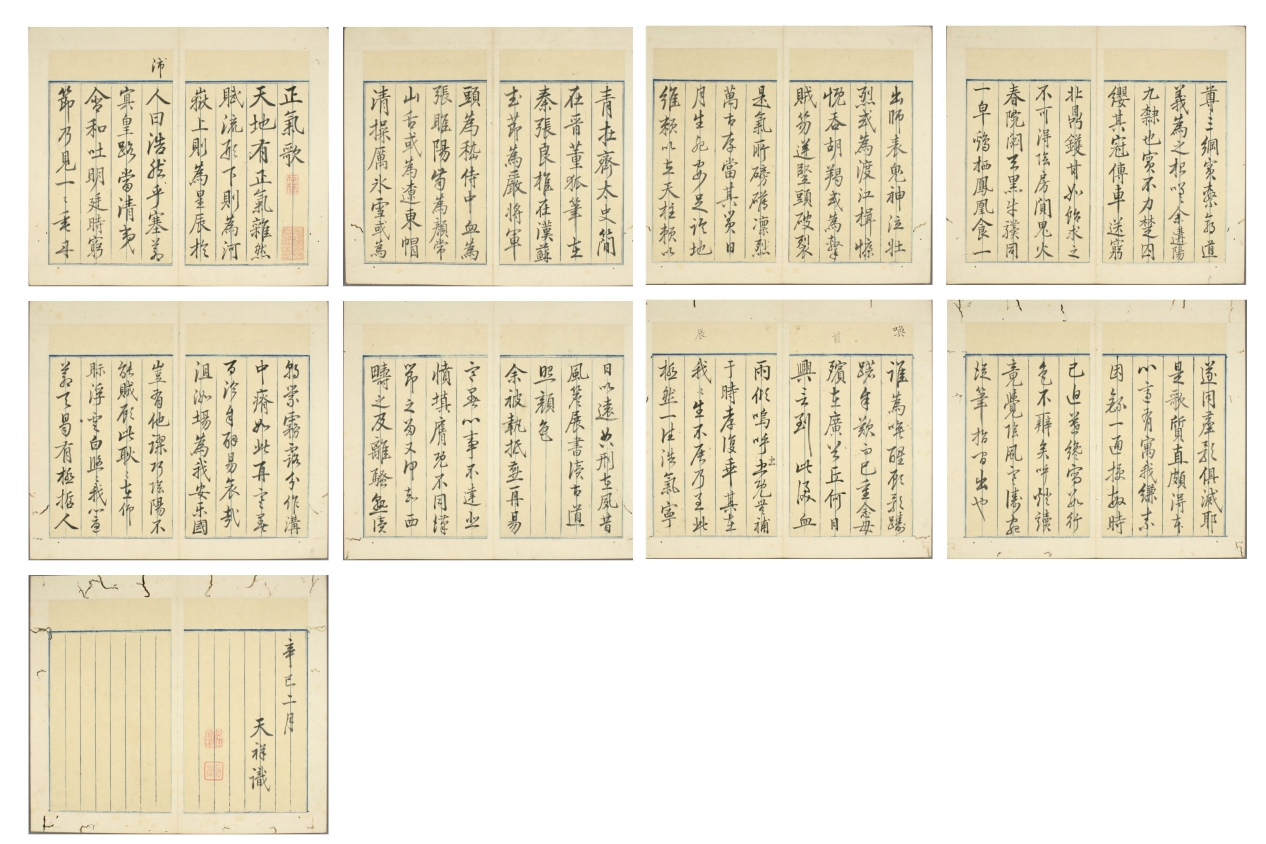 正氣歌
天地有正氣雜然
賦流形下則為河
嶽上則為星辰於
人曰浩然乎塞蒼
沛
冥皇路當清夷
含和吐明廷時窮
節乃見一〻垂丹
青在齊太史簡
在晉董狐筆在
秦張良椎在漢蘇
武節為嚴將軍
頭為嵇侍中血為
張睢陽齒為顏常
山舌或為遼東帽
清操厲冰雪或為
出師表鬼神泣壯
烈或為渡江楫慷
慨吞胡羯或為擊
賊笏逆豎頭破裂
是氣所磅礴凜烈
萬古存當其貫日
月生死安足論地
維賴以立天柱賴以
尊三綱實系命道
義為之根嗟余遘陽
九隸也實不力楚囚
纓其冠傳車送窮
北鼎鑊甘如飴求之
不可得陰房闃鬼火
春院閟天黑牛驥同
一皁雞栖鳳凰食一
朝蒙霧露分作溝
中瘠如此再寒暑
百沴自辟易哀哉
沮洳場為我安樂國
豈有他謬巧陰陽不
能賊顧此耿〻在仰
視浮雲白悠〻我心
蒼天曷有極哲人
日以遠典刑在夙昔
風簷展書讀古道
照顏色
余被執抵燕再易
寒暑心事不達悲
憤填膺既不同漢
節之
疇之及離騷讀
喚
誰為喚醒顧影躊
躇自歎而已重念母
首
殯在廣丘何日
興言到此淚血
雨傾嗚呼忠既無補
于時孝復乖其在
辰
我〻生不辰乃至此
極然一片浩氣寧
遂同塵影俱滅耶
是歌質直頗得本
心有寓我縑素
因錄一通時
已迫暮纔寫數行
色不辨矣呼燈讀
竟覺陰風寒濤宛
從筆指間出也
辛巳二月
天祥識